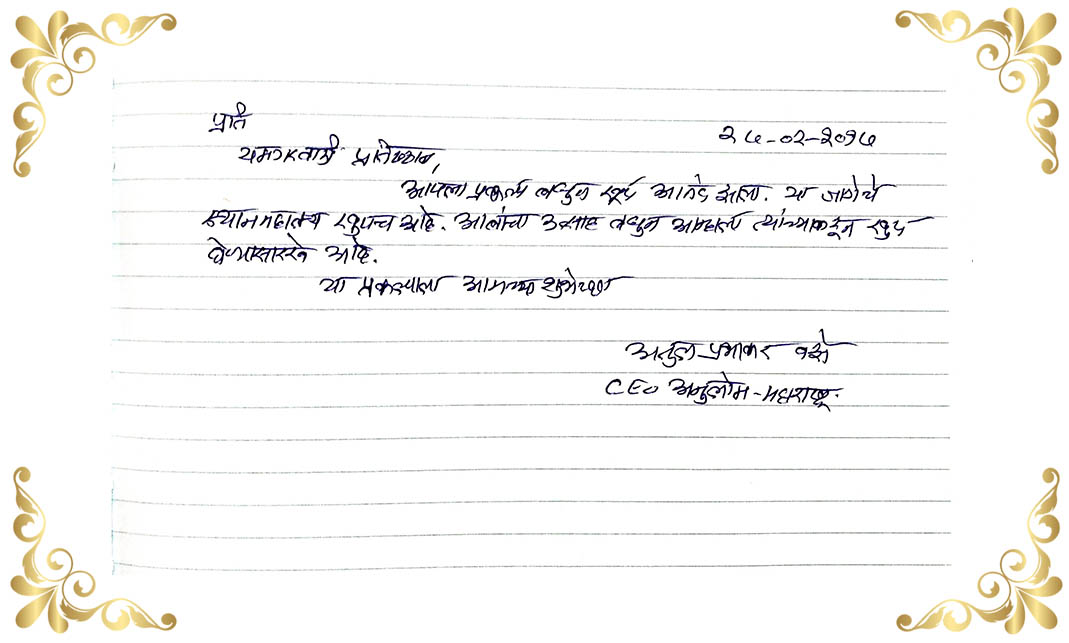 प्रति
२७-०२-२०१७
समरसता प्रतिष्ठान,
आपला प्रकल्प बघून खूप आनंद झाला. या जागेचे
स्थानमहात्म्य खुपच आहे. उत्साह बघून आम्हाला त्यांच्याकडून खुप
घेण्यासारखे आहे.
या प्रकल्पाला आमच्या शुभेच्छा
अतुल प्रभाकर वझे
CEO अनुलोम - महाराष्ट्र.